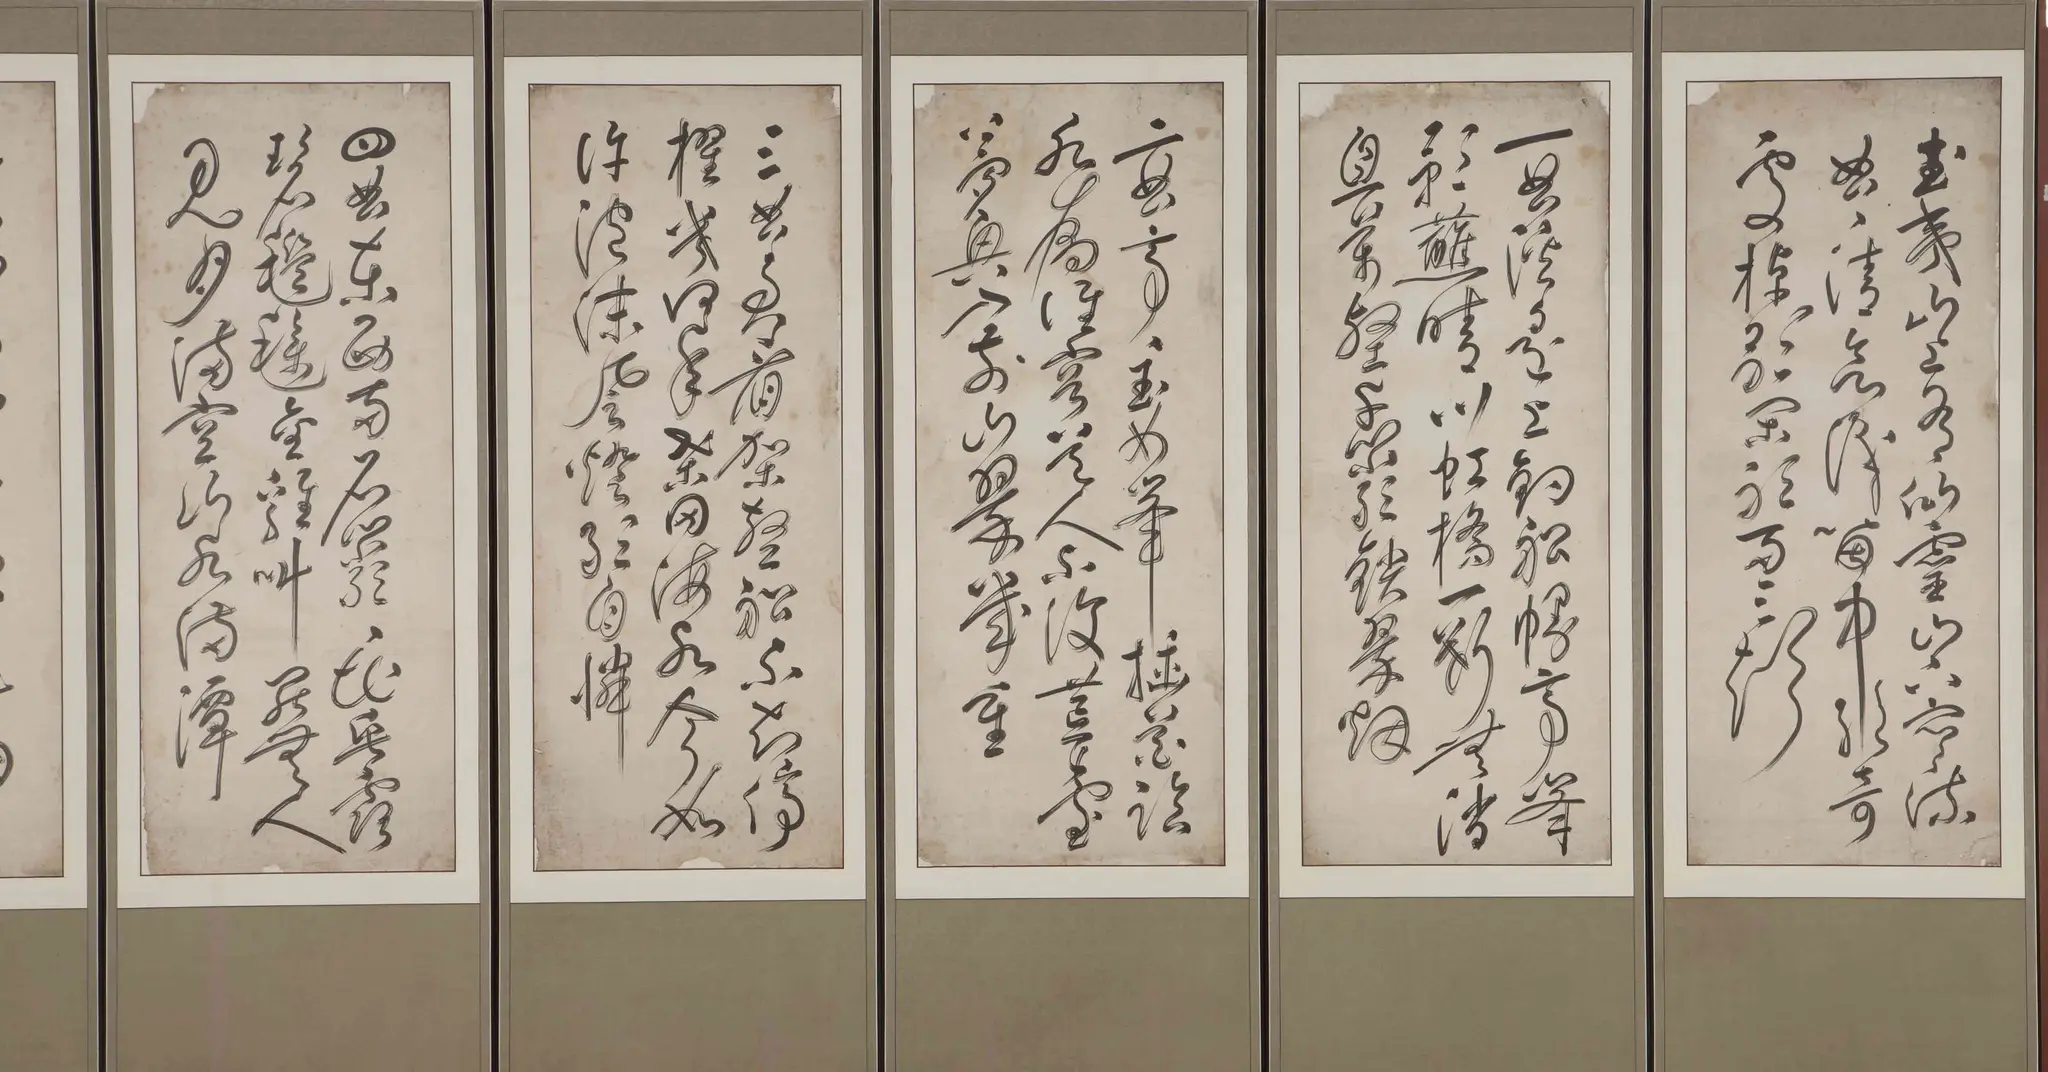 武夷山上有仙靈山下寒流
曲〻清欲識箇中絶奇
處棹歌閑聽兩三聲
一曲溪邊上釣船幔亭峯
影蘸晴川虹橋一斷無消
息萬壑千巖鎖翠烟
二曲亭〻玉女峯插花臨
水爲誰容道人不復荒臺
夢興入前山翠幾重
三曲君看架壑船不知停
櫂幾何年桑田海水今如
許泡沫風燈敢自憐
四曲東西兩石巖〻花垂露
碧㲯毿金雞叫罷無人
見月滿空山水滿潭